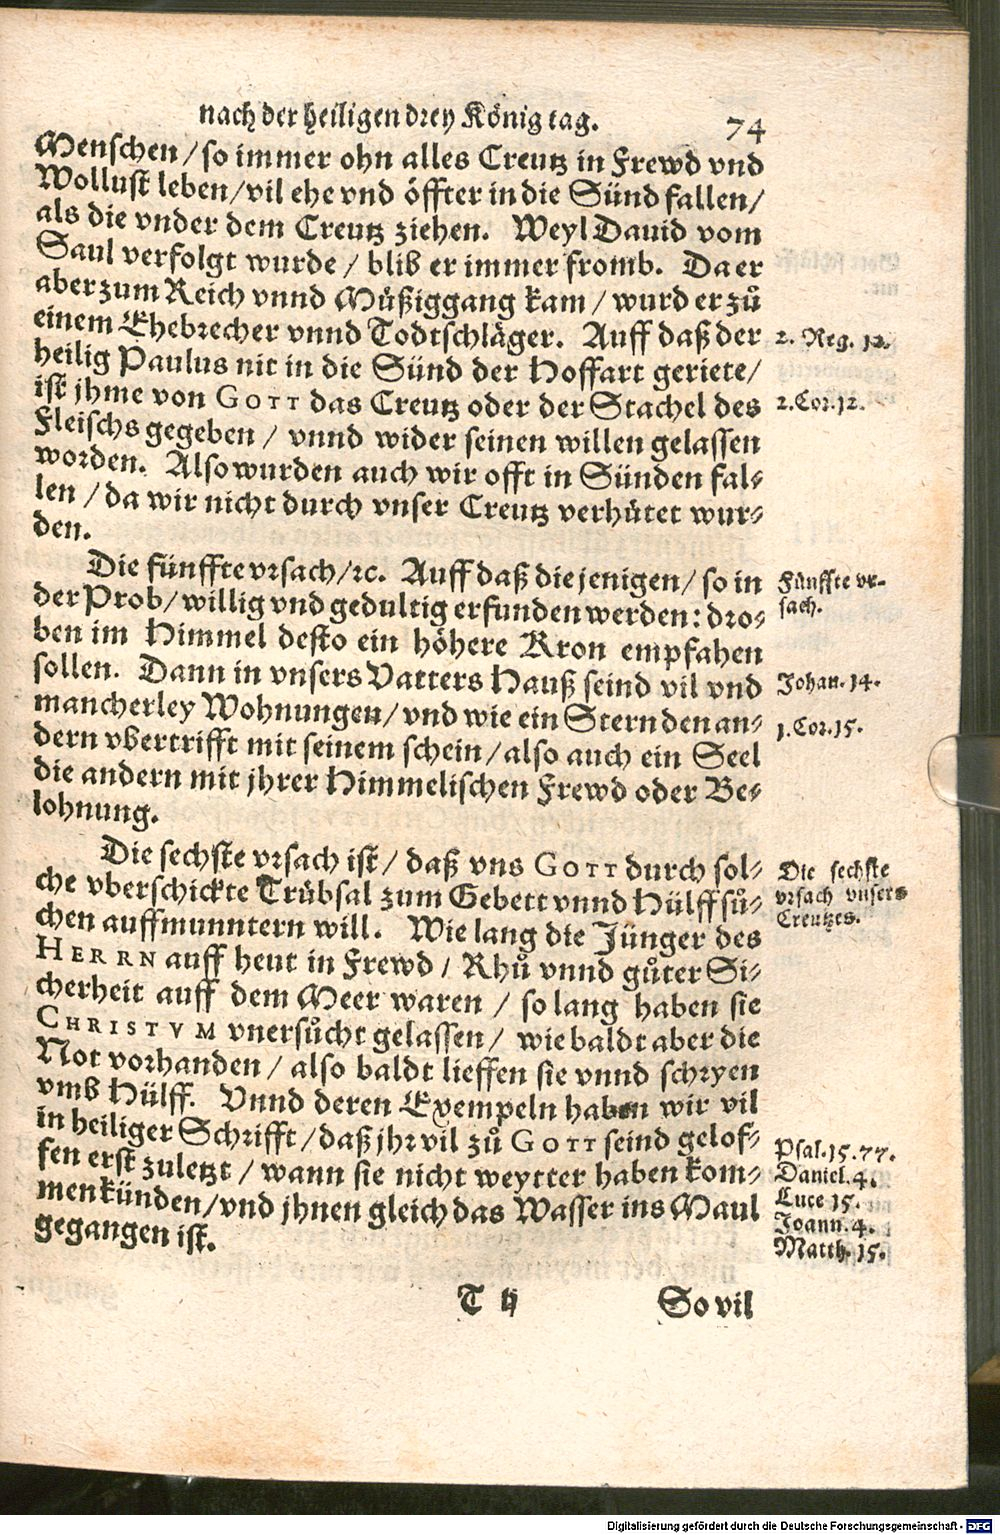 nach der heiligen drey König tag.
74
Menschen / so immer ohn alles Creutz in Frewd vnd
Wollust leben / vil ehe vnd öffter in die Sünd fallen /
als die vnder dem Creutz ziehen. Weyl Dauid vom
Saul verfolgt wurde / blib er immer fromb. Da er
aber zum Reich vnnd Müßiggang kam / wurd er zů
einem Ehebrecher vnnd Todtschläger. Auff daß der
2. Reg. 12.
heilig Paulus nit in die Sünd der Hoffart geriete /
ist jhme von GOTT das Creutz oder der Stachel des
2. Cor. 12.
Fleischs gegeben / vnnd wider seinen willen gelassen
worden. Also wurden auch wir offt in Sünden fal⸗
len / da wir nicht durch vnser Creutz verhütet wur⸗
den.
Die fünffte vrsach / ꝛc. Auff daß die jenigen / so in
Fünffte vr-
der Prob / willig vnd gedultig erfunden werden: dro⸗
sach.
ben im Himmel desto ein höhere Kron empfahen
sollen. Dann in vnsers Vatters Hauß seind vil vnd
Johan. 14.
mancherley Wohnungen / vnd wie ein Stern den an⸗
1. Cor. 15.
dern vbertrifft mit seinem schein / also auch ein Seel
die andern mit jhrer Himmelischen Frewd oder Be⸗
lohnung.
Die sechste vrsach ist / daß vns GOTT durch sol⸗
Die sechste
che vberschickte Trübsal zum Gebett vnnd Hülff sů⸗
vrsach vnsers
chen auffmunntern will. Wie lang die Jünger des
Creutzes.
HERRN auff heut in Frewd / Rhů vnnd gůter Si⸗
cherheit auff dem Meer waren / so lang haben sie
CHRISTVM vnersůcht gelassen / wie baldt aber die
Not vorhanden / also baldt lieffen sie vnnd schryen
vmb Hülff. Vnnd deren Exempeln haben wir vil
in heiliger Schrifft / daß jhr vil zů GOTT seind gelof⸗
Psal. 15. 77.
fen erst zuletzt / wann sie nicht weytter haben kom⸗
Daniel. 4.
men künden / vnd jhnen gleich das Wasser ins Maul
Luce 15.
gegangen ist.
Joann. 4.
Matth. 15.
T ij
So vil
Digitalisierung gefördert durch die Deutsche Forschungsgemeinschaft - DFG